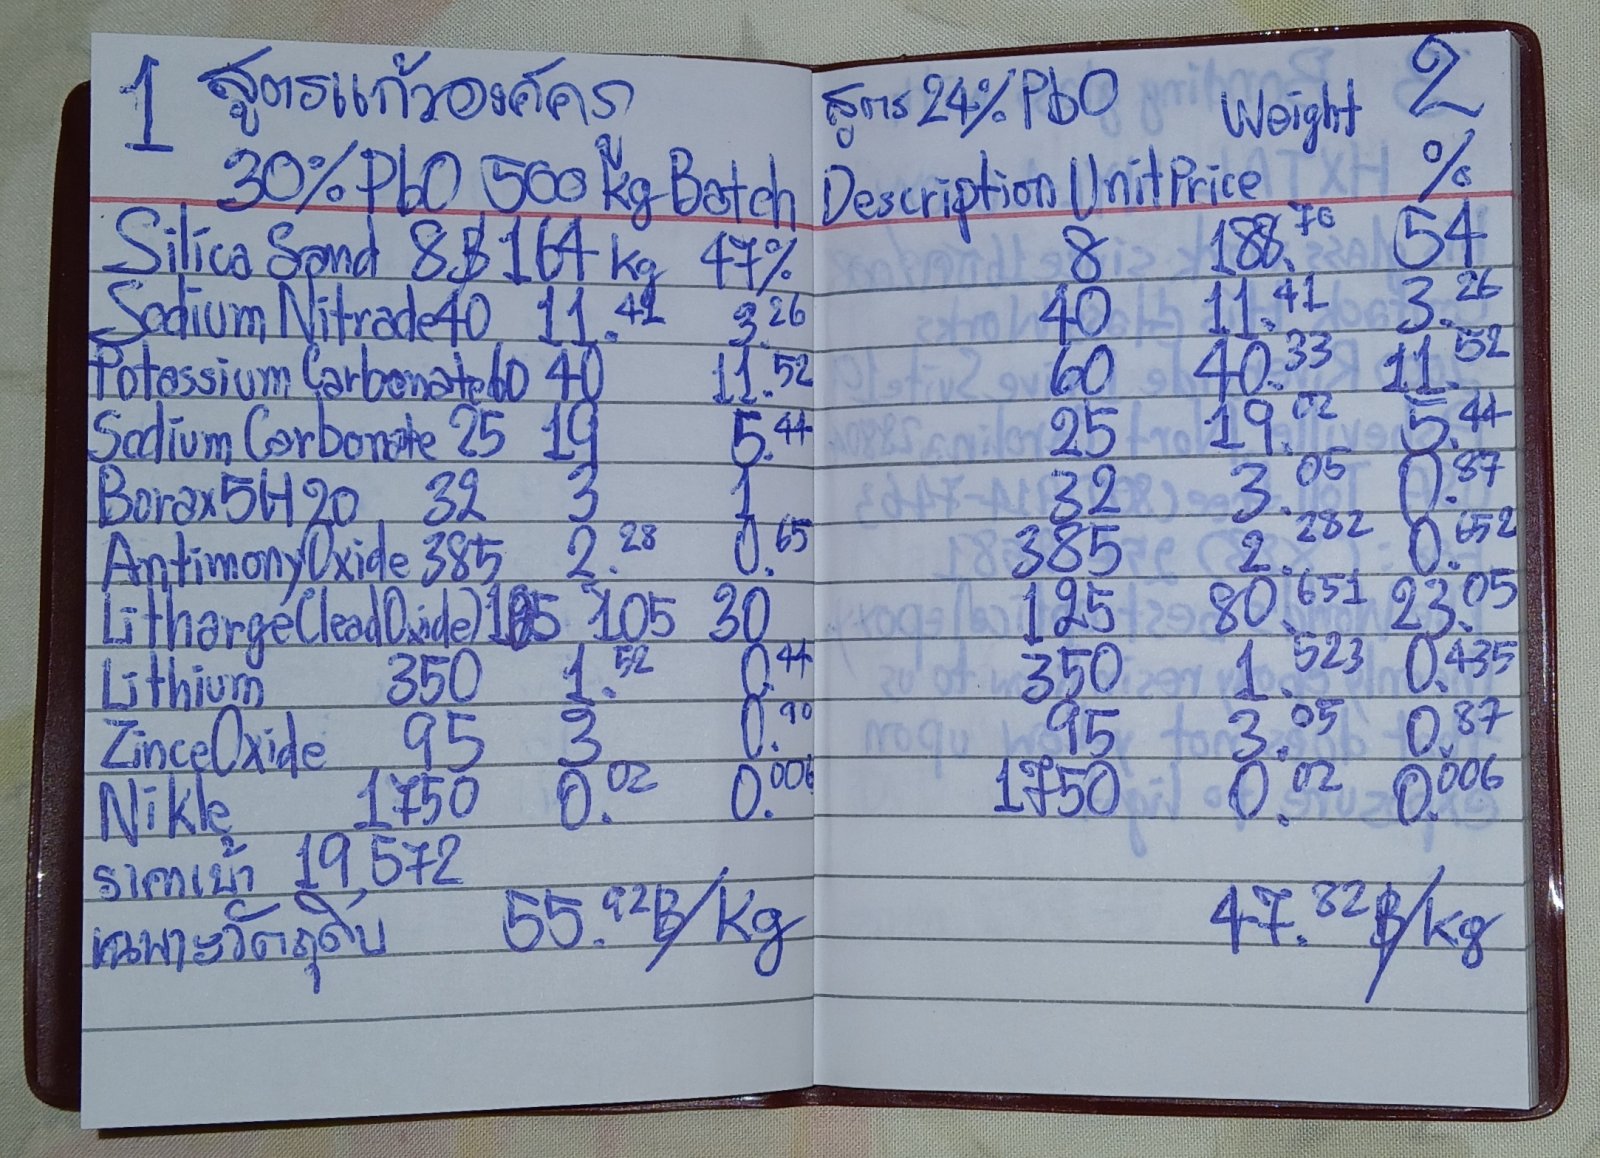 1 สูตรแก้วองค์ครู
30% PbO 500 kg Batch
Silica Sand 8฿ 164 kg 47%
Sodium Nitrade 40 11.41 3.26
Potassium Carbonate 60 40 11.52
Sodium Carbonate 25 19 5.44
Borax 5H20 32 3 1
Antimony Oxide 385 2.28 0.65
Litharge (lead Oxide) 105 30
Lithium 350 1.52 0.44
Zince Oxide 95 3 0.90
Nikle 1750 0.02 0.006
ราคาเบ้า 19572
เฉพาะวัตถุดิบ 55.92฿/kg
สูตร 24% PbO Weight 2
Description Unit Price %
8 188.70 54
40 11.41 3.26
60 40.33 11.52
25 19.02 5.44
32 3.05 0.87
385 2.282 0.652
125 80.651 23.05
350 1.523 0.435
95 3.05 0.87
1750 0.02 0.006
47.82฿/kg